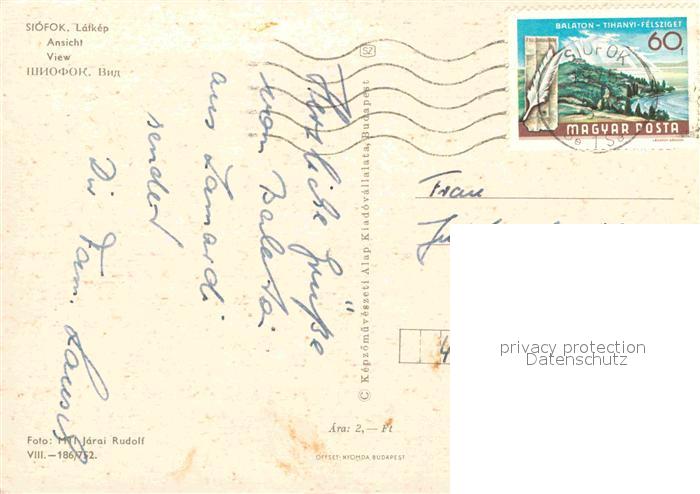 SIÓFOK, Látkép
Ansicht
View
ШИОФОК. Вид
Herzliche Grüße
vom Balaton
aus Zamardi
sendet
Dir Fam.
Foto: MTI Járai Rudolf
VIII.—186/752.
© Képzőművészeti Alap Kiadóvállalata, Budapest
SZ
Ára: 2,— Ft
OFFSET-NYOMDA BUDAPEST
BALATON – TIHANYI-FÉLSZIGET
60f
MAGYAR POSTA
SIÓFOK
Frau
4
privacy protection
Datenschutz